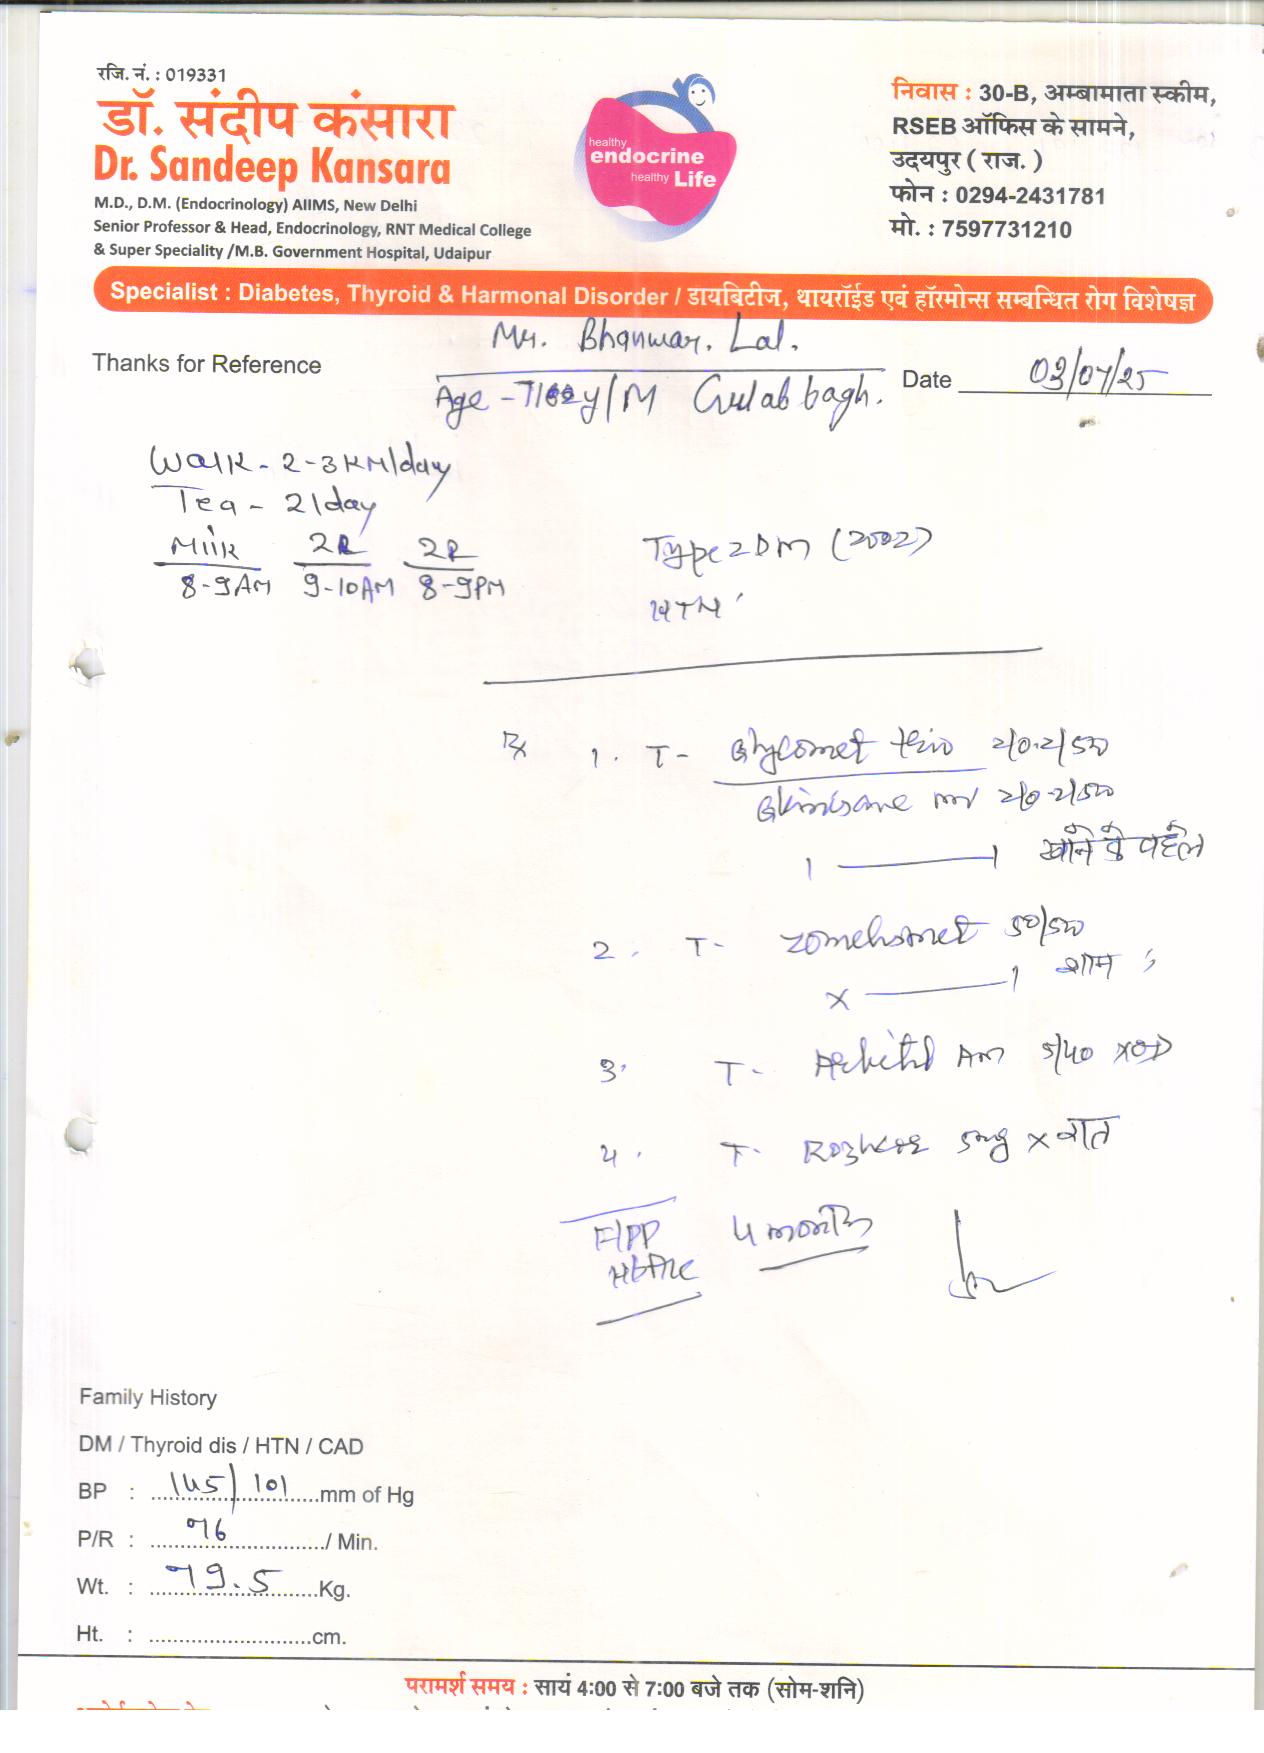 रजि. नं. : 019331
डॉ. संदीप कंसारा
Dr. Sandeep Kansara
M.D., D.M. (Endocrinology) AIIMS, New Delhi
Senior Professor & Head, Endocrinology, RNT Medical College
& Super Speciality /M.B. Government Hospital, Udaipur
healthy
endocrine
healthy Life
निवास : 30-B, अम्बामाता स्कीम,
RSEB ऑफिस के सामने,
उदयपुर ( राज. )
फोन : 0294-2431781
मो. : 7597731210
Specialist : Diabetes, Thyroid & Harmonal Disorder / डायबिटीज, थायरॉईड एवं हॉरमोन्स सम्बन्धित रोग विशेषज्ञ
Mr. Bhanwar. Lal.
Thanks for Reference
Date 03/07/25
Age - y/M Gulab bagh.
Walk - 2-3 KM/day
Tea - 2/day
Milk 2R 2R
8-9AM 9-10AM 8-9PM
Type 2 DM (2002)
HTN
Rx 1. T- Glycomet trio 2/0.2/500
2/0.2/500
1 — 1 खाने से पहले
2. T- 50/500
x — 1 शाम
3. T- AM 5/40 x OD
4. T- 5mg x रात
F/PP 4 month
HbA1c
Family History
DM / Thyroid dis / HTN / CAD
BP : 145/101 mm of Hg
P/R : 76 / Min.
Wt. : 79.5 Kg.
Ht. : cm.
परामर्श समय : सायं 4:00 से 7:00 बजे तक (सोम-शनि)